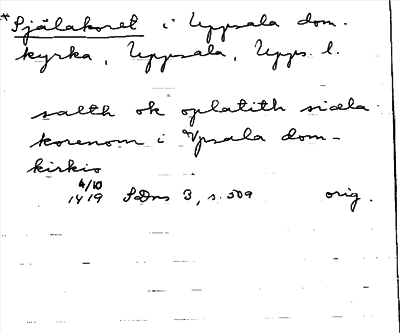 *Själakoret i Uppsala dom-
kyrka, Uppsala, Upps. l.
salth ok oplatith siæla
korenom i Vpsala dom-
kirkio
4/10
1419 SDns 3, s. 509 orig.